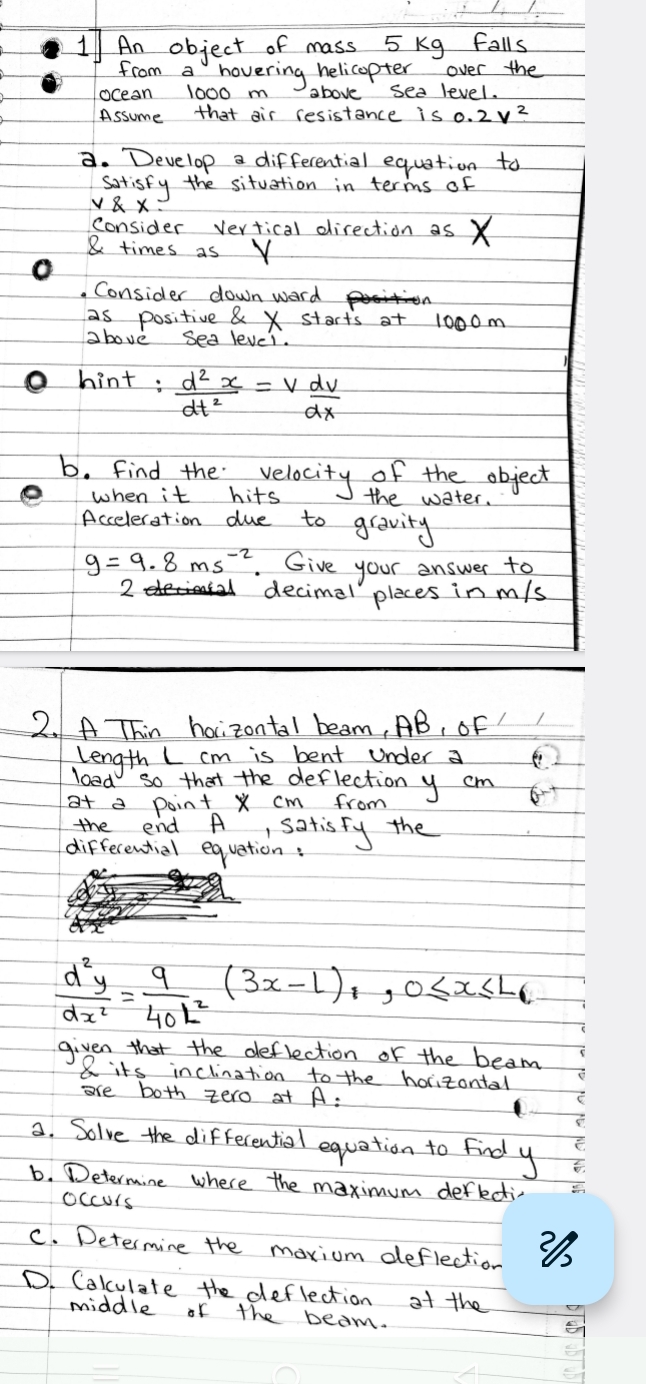 1] An object of mass 5 Kg falls
from a hovering helicopter over the
ocean 1000 m above sea level.
Assume that air resistance is 0.2 v²
a. Develop a differential equation to
satisfy the situation in terms of
v & x.
Consider vertical direction as X
& times as Y
. Consider down ward position
as positive & X starts at 1000m
above sea level.
hint : d²x/dt² = v dv/dx
b. find the velocity of the object
when it hits the water.
Acceleration due to gravity
g = 9.8 ms⁻². Give your answer to
2 decimal decimal places in m/s
2. A Thin horizontal beam, AB, of
length L cm is bent under a
load so that the deflection y cm
at a point X cm from
the end A, satisfy the
differential equation :
d²y/dx² = 9/40L² (3x-L); , 0≤x≤L
given that the deflection of the beam
& its inclination to the horizontal
are both zero at A:
a. Solve the differential equation to find y
b. Determine where the maximum deflectio
occurs
c. Determine the maxium deflection
D. Calculate the deflection at the
middle of the beam.